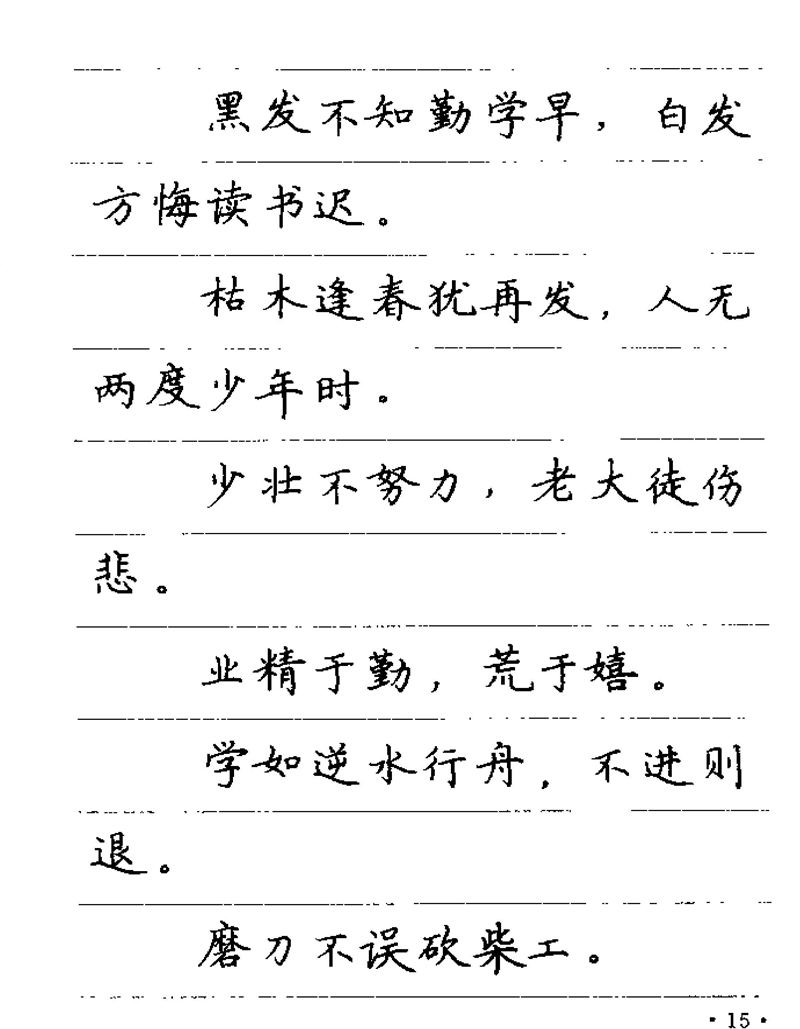 黑发不知勤学早，白发
方悔读书迟。
枯木逢春犹再发，人无
两度少年时。
少壮不努力，老大徒伤
悲。
业精于勤，荒于嬉。
学如逆水行舟，不进则
退。
磨刀不误砍柴工。
·15·